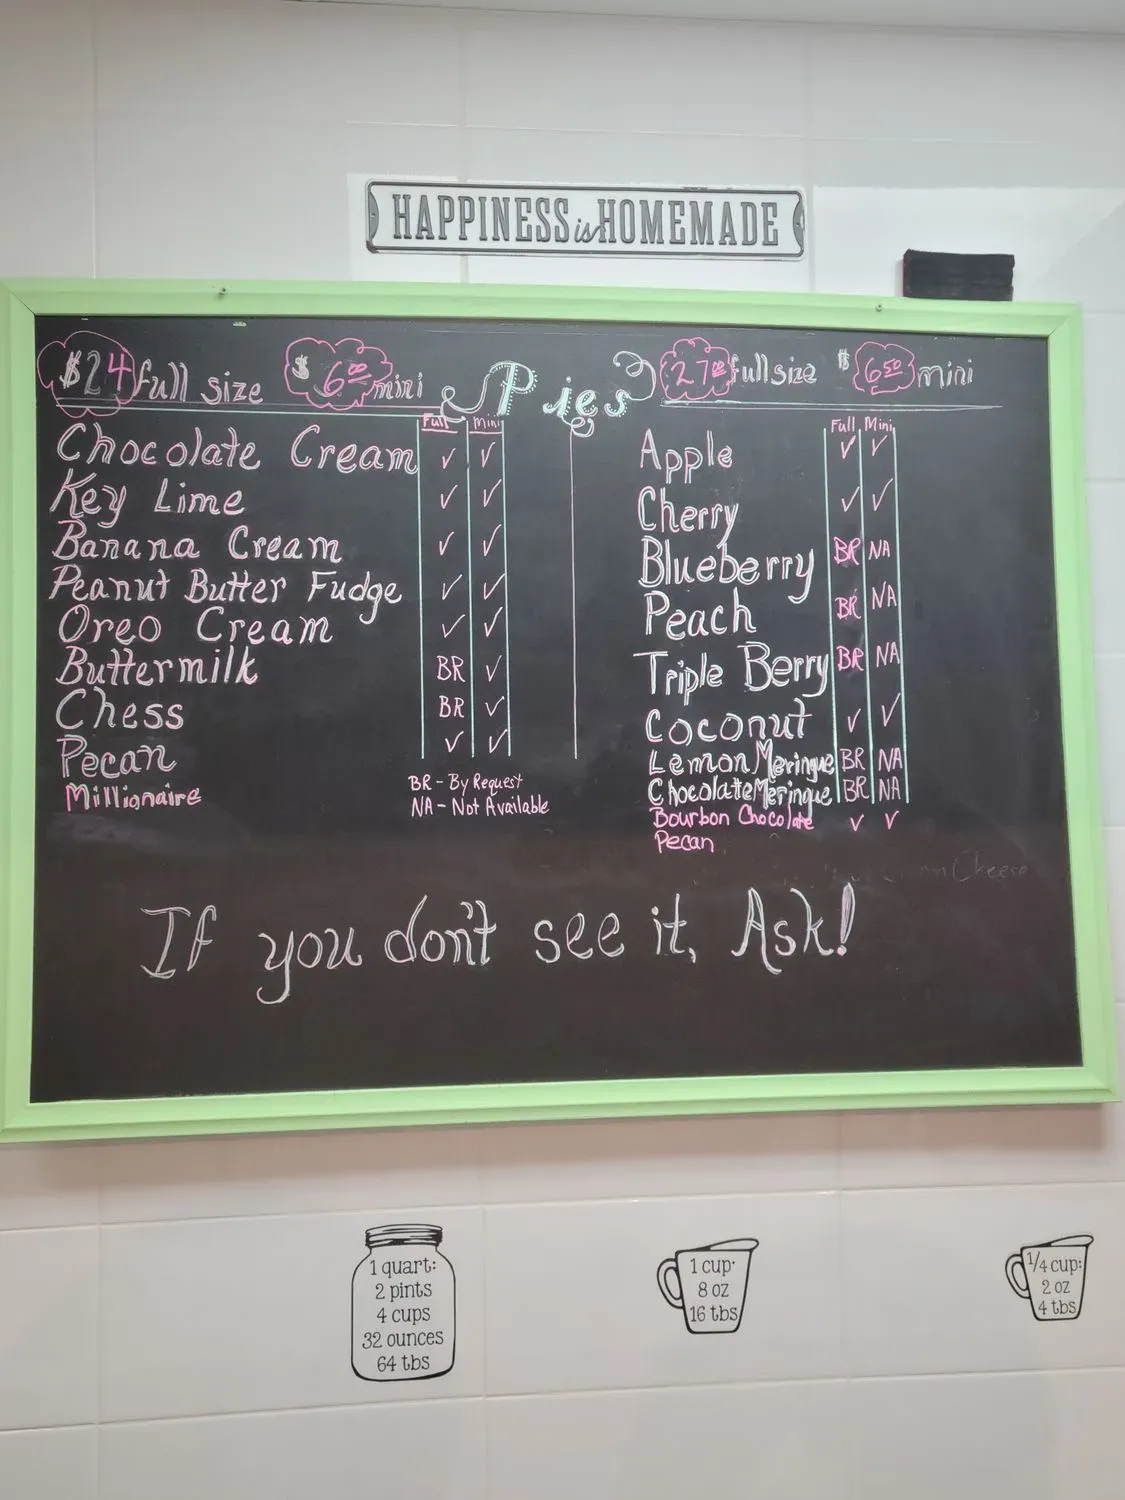 HAPPINESS is HOMEMADE
$24 full size $6.00 mini
Pies
27.00 full size $6.50 mini
Full Mini
Chocolate Cream ✓ ✓
Key Lime ✓ ✓
Banana Cream ✓ ✓
Peanut Butter Fudge ✓ ✓
Oreo Cream ✓ ✓
Buttermilk BR ✓
Chess BR ✓
Pecan ✓ ✓
Millionaire
BR - By Request
NA - Not Available
Full Mini
Apple ✓ ✓
Cherry ✓ ✓
Blueberry BR NA
Peach BR NA
Triple Berry BR NA
Coconut ✓ ✓
Lemon Meringue BR NA
Chocolate Meringue BR NA
Bourbon Chocolate ✓ ✓
Pecan
Cheese
If you don't see it, Ask!
1 quart:
2 pints
4 cups
32 ounces
64 tbs
1 cup:
8 oz
16 tbs
1/4 cup:
2 oz
4 tbs